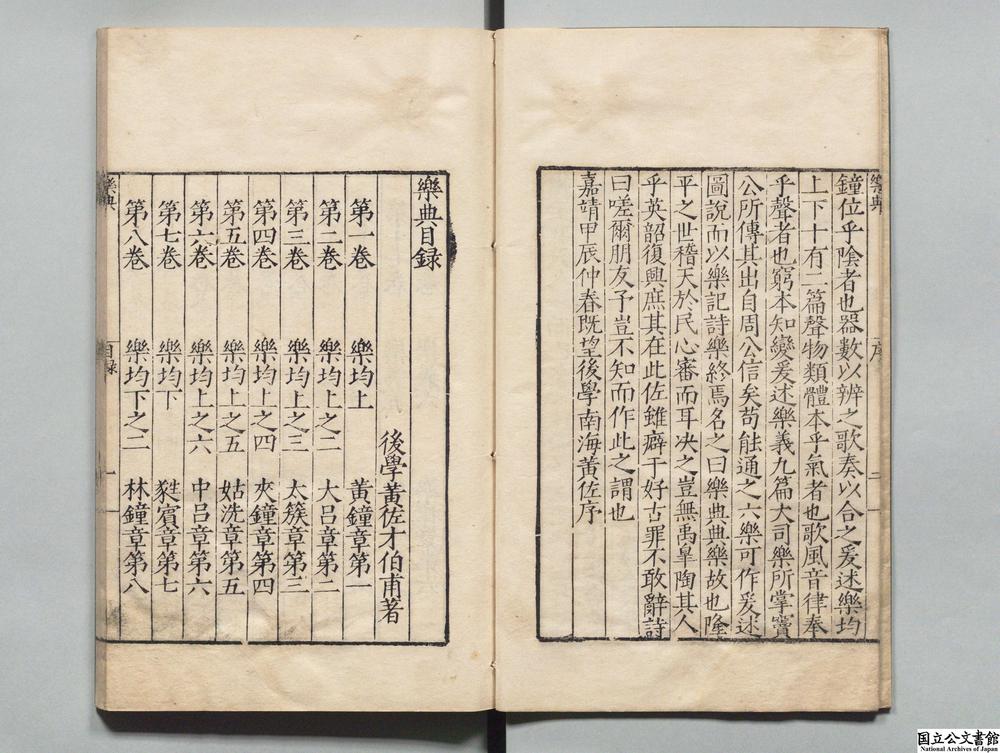 鐘位乎陰者也器數以辨之歌奏以合之爰述樂均
上下十有二篇聲物類體本乎氣者也歌風音律奉
乎聲者也窮本知變爰述樂義九篇大司樂所掌竇
公所傳其出自周公信矣苟能通之六樂可作爰述
圖說而以樂記詩樂終焉名之曰樂典典樂故也隆
平之世稽天於民心審而耳决之豈無禹皐陶其人
乎英韶復興庶其在此佐雖癖干好古罪不敢辭詩
曰嗟爾朋友予豈不知而作此之謂也
嘉靖甲辰仲春既望後學南海黃佐序
樂典目録
後學黃佐才伯甫著
第一卷 樂均上 黃鐘章第一
第二卷 樂均上之二 大呂章第二
第三卷 樂均上之三 太簇章第三
第四卷 樂均上之四 夾鐘章第四
第五卷 樂均上之五 姑洗章第五
第六卷 樂均上之六 中呂章第六
第七卷 樂均下 蕤賓章第七
第八卷 樂均下之二 林鐘章第八
樂典 目録 一
国立公文書館
National Archives of Japan